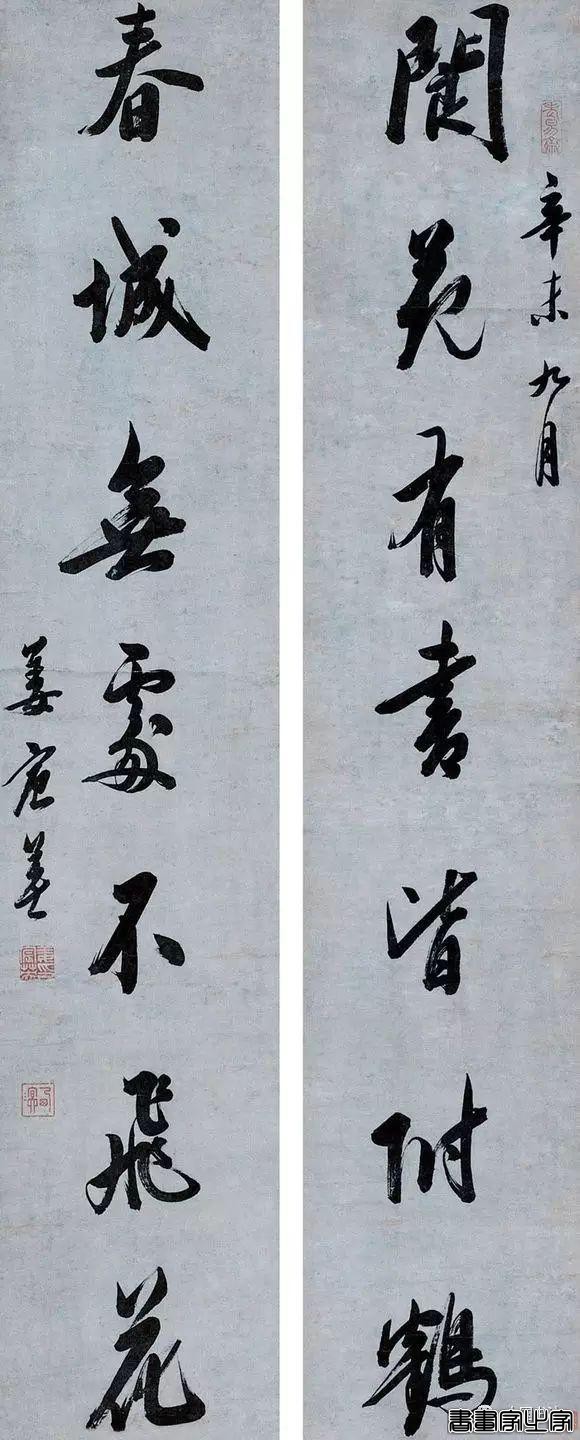 辛未九月
閬苑有書皆附鶴
春城無處不飛花
姜宸英
書畫家之家